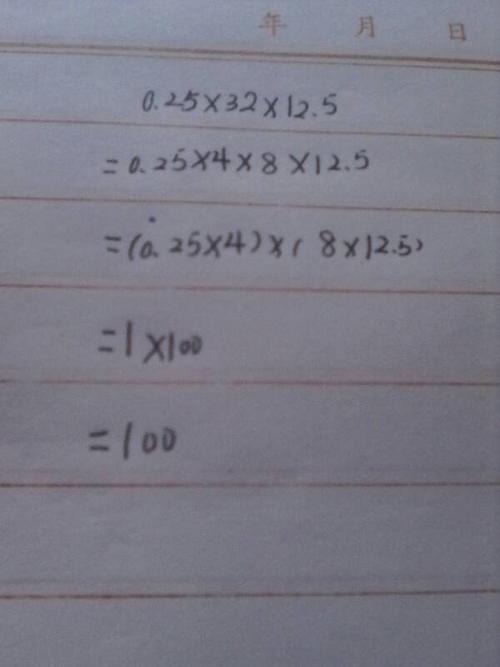 年 月 日
0.25×32×12.5
=0.25×4×8×12.5
=(0.25×4)×(8×12.5)
=1×100
=100